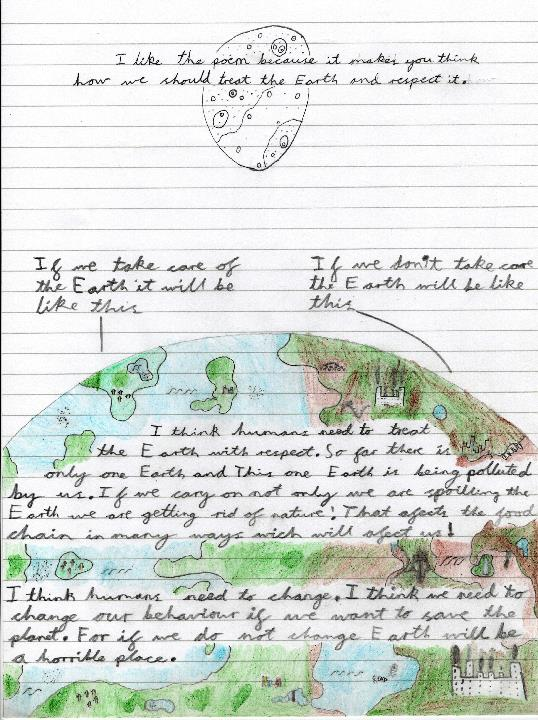 I like the poem because it makes you think
how we should treat the Earth and respect it.
If we take care of
the Earth it will be
like this
If we don't take care
the Earth will be like
this
I think humans need to treat
the Earth with respect. So far there is
only one Earth and This one Earth is being polluted
by us. If we cary on not only we are spoilling the
Earth we are getting rid of nature! That afects the food
chain in many ways wich will afect us!
I think humans need to change. I think we need to
change our behaviour if we want to save the
planet. For if we do not change Earth will be
a horrible place.